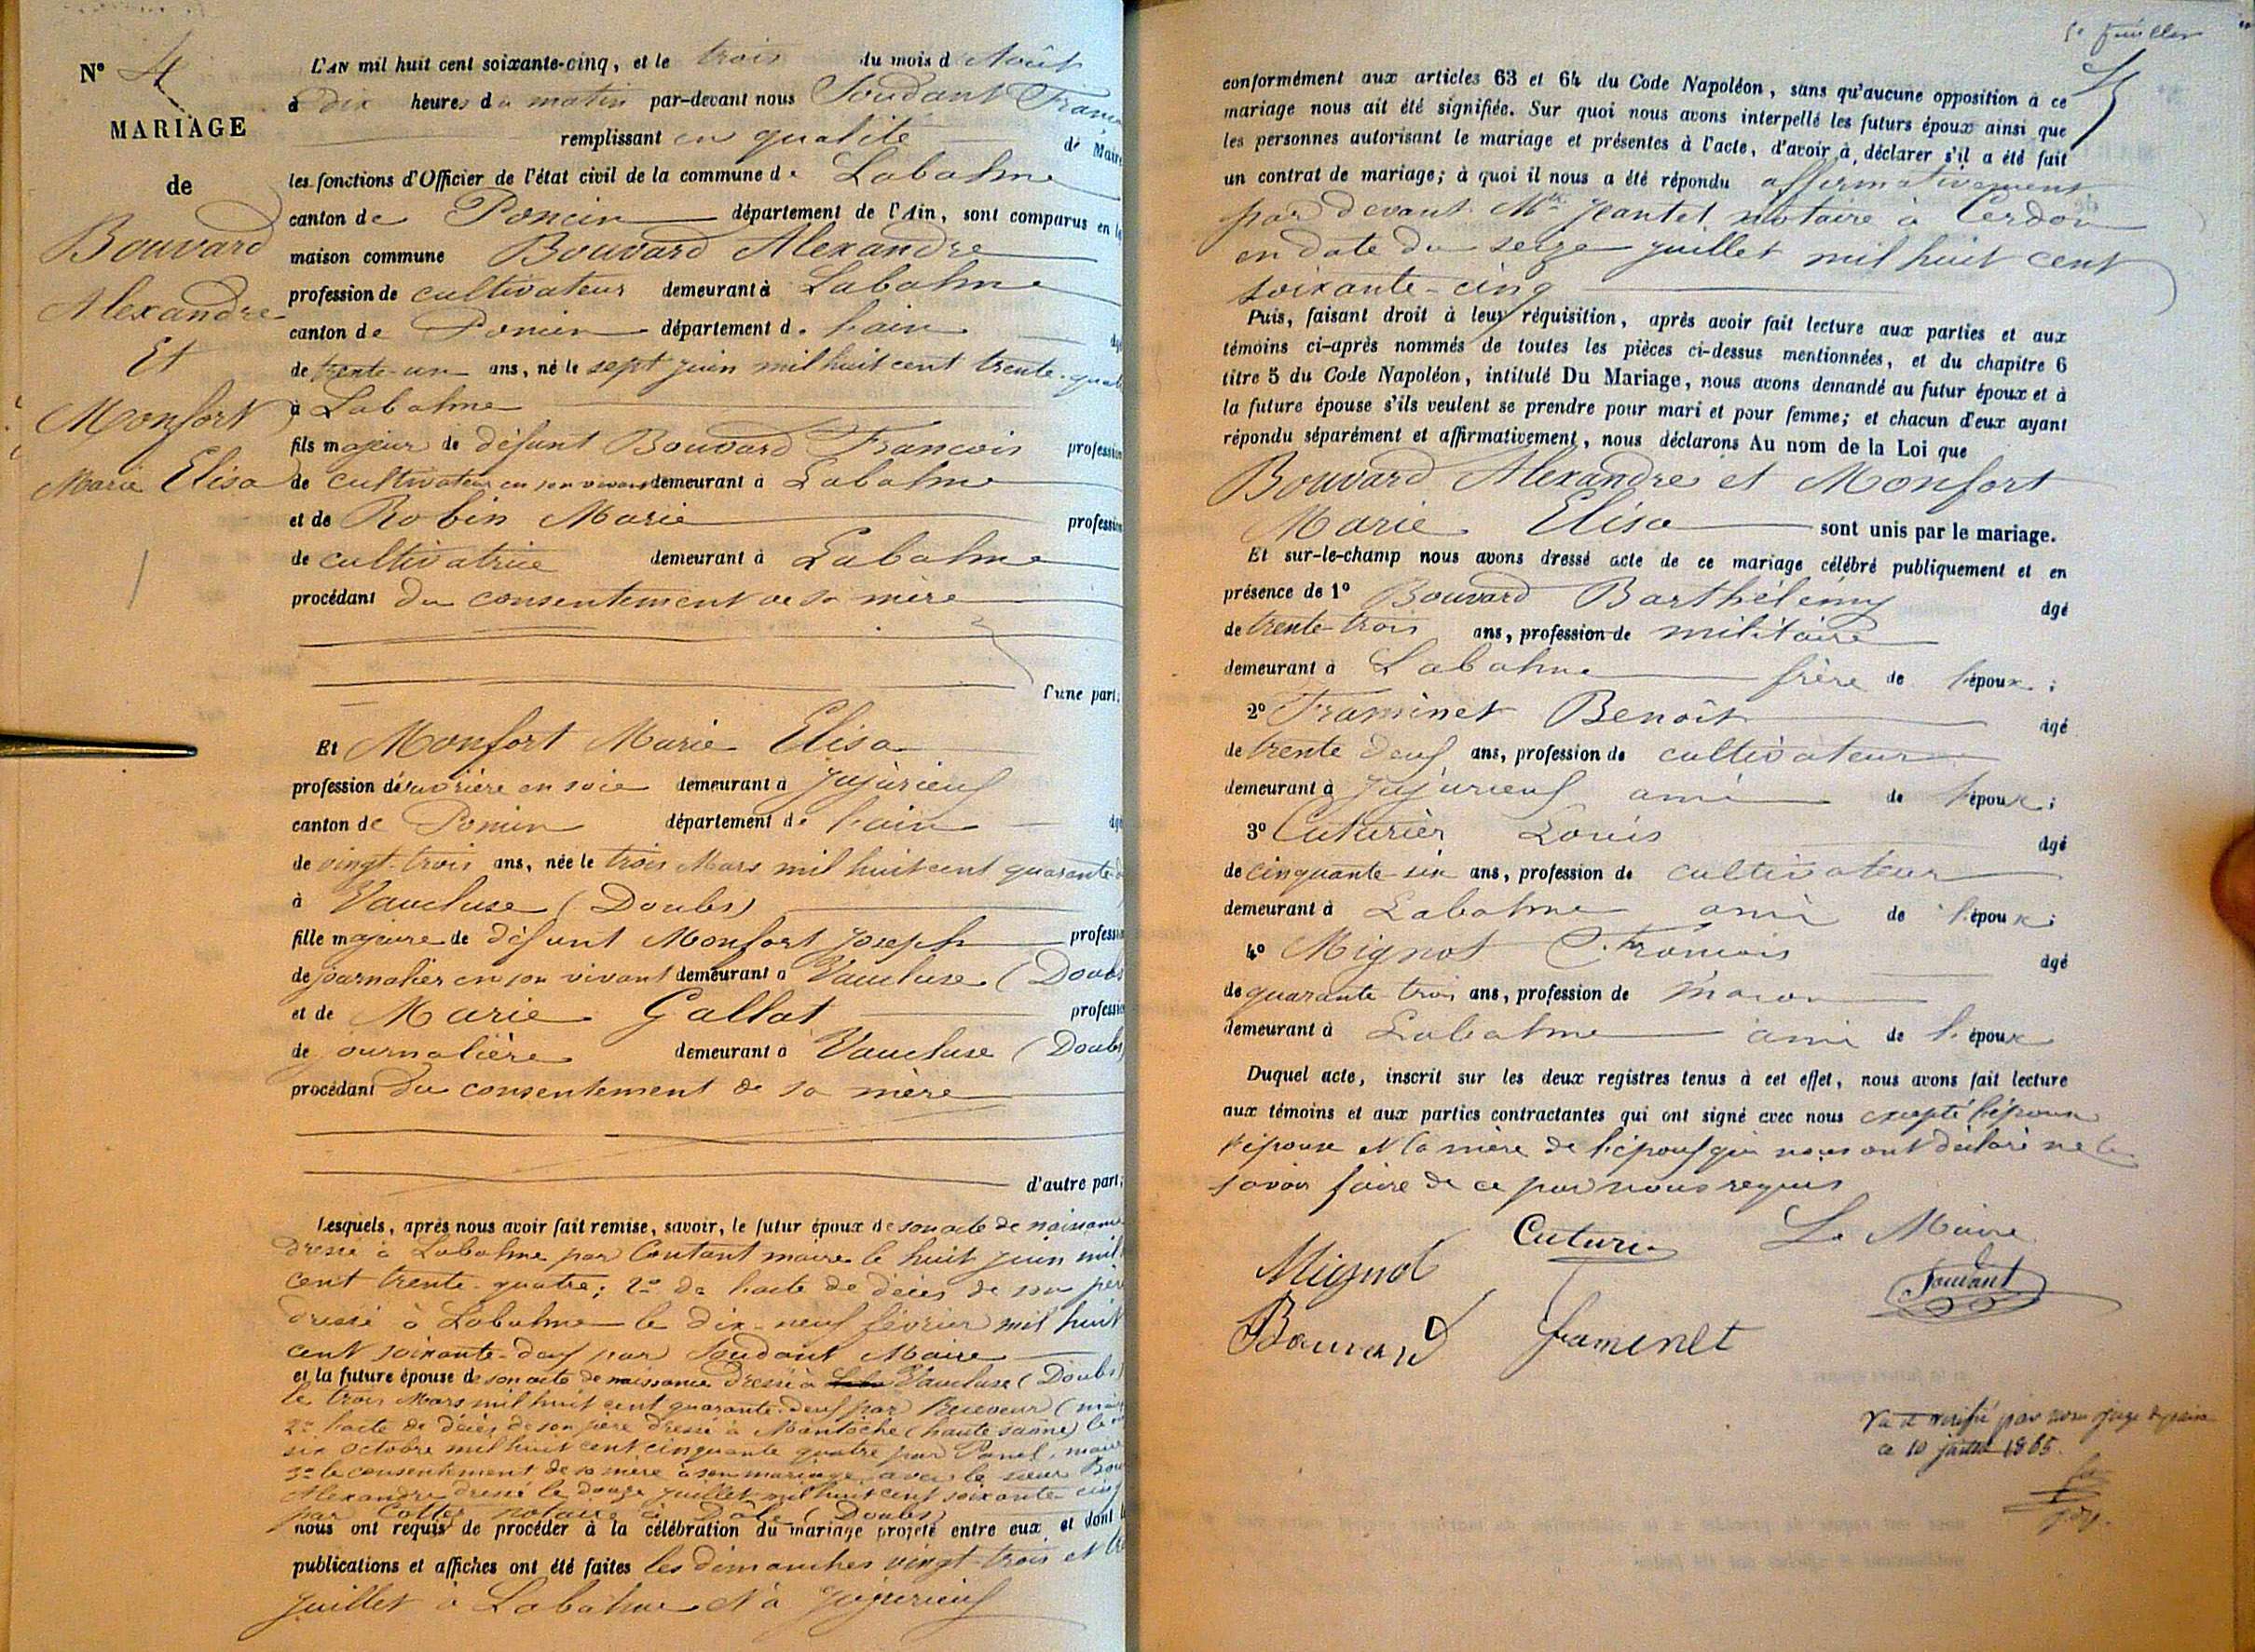 N° 4
MARIAGE
de
Bouvard
Alexandre
Et
Monfort
Marie Elisa
L'AN mil huit cent soixante-cinq, et le trois du mois d Août
à dix heures du matin par-devant nous Soudant Franç
remplissant en qualité de Maire
les fonctions d'Officier de l'état civil de la commune de Labalme
canton de Poncin département de l'Ain, sont comparus en la
maison commune Bouvard Alexandre
profession de cultivateur demeurant à Labalme
canton de Poncin département de l'ain âgé
de trente-un ans, né le sept juin mil huit cent trente-quat
à Labalme
fils majeur de défunt Bouvard François profession
de cultivateur en son vivant demeurant à Labalme
et de Robin Marie profession
de cultivatrice demeurant à Labalme
procédant du consentement de sa mère
l'une part;
Et Monfort Marie Elisa
profession d'ouvrière en soie demeurant à Jujurieux
canton de Poncin département de l'ain âgé
de vingt-trois ans, née le trois Mars mil huit cent quarante-d
à Vaucluse (Doubs)
fille majeure de défunt Monfort Joseph profession
de journalier en son vivant demeurant à Vaucluse (Doubs
et de Marie Gallat profession
de journalière demeurant à Vaucluse (Doubs)
procédant du consentement de sa mère
d'autre part;
Lesquels, après nous avoir fait remise, savoir, le futur époux de son acte de naissance
dressé à Labalme par Coutant maire le huit juin mil
cent trente-quatre; 2° de l'acte de décès de son père
dressé à Labalme le dix-neuf février mil huit
cent soixante-deux par Soudant Maire
et la future épouse de son acte de naissance dressé à Vaucluse (Doubs)
le trois Mars mil huit cent quarante-deux par Receveur (maire
2° l'acte de décès de son père dressé à Mantoche (haute saône) le
six octobre mil huit cent cinquante quatre par Panel, maire
3° le consentement de sa mère à son mariage avec le sieur Bou
Alexandre dressé le douze juillet mil huit cent soixante-cinq
par Cottez notaire à Dôle (Doubs)
nous ont requis de procéder à la célébration du mariage projeté entre eux, et dont l
publications et affiches ont été faites les dimanches vingt-trois et tre
juillet à Labalme et à Jujurieux
5e feuillet
conformément aux articles 63 et 64 du Code Napoléon, sans qu'aucune opposition à ce
mariage nous ait été signifiée. Sur quoi nous avons interpellé les futurs époux ainsi que
les personnes autorisant le mariage et présentes à l'acte, d'avoir à déclarer s'il a été fait
un contrat de mariage; à quoi il nous a été répondu affirmativement
par devant Mtre Jeantet notaire à Cerdon
en date du seize juillet mil huit cent
soixante-cinq
Puis, faisant droit à leur réquisition, après avoir fait lecture aux parties et aux
témoins ci-après nommés de toutes les pièces ci-dessus mentionnées, et du chapitre 6
titre 5 du Code Napoléon, intitulé Du Mariage, nous avons demandé au futur époux et à
la future épouse s'ils veulent se prendre pour mari et pour femme; et chacun d'eux ayant
répondu séparément et affirmativement, nous déclarons Au nom de la Loi que
Bouvard Alexandre et Monfort
Marie Elisa sont unis par le mariage.
Et sur-le-champ nous avons dressé acte de ce mariage célébré publiquement et en
présence de 1° Bouvard Barthélemy âgé
de trente-trois ans, profession de militaire
demeurant à Labalme frère de l'époux;
2° Framinet Benoît âgé
de trente deux ans, profession de cultivateur
demeurant à Jujurieux ami de l'époux;
3° Cuturier Louis âgé
de cinquante-six ans, profession de cultivateur
demeurant à Labalme ami de l'époux;
4° Mignot François âgé
de quarante-trois ans, profession de maçon
demeurant à Labalme ami de l'époux
Duquel acte, inscrit sur les deux registres tenus à cet effet, nous avons fait lecture
aux témoins et aux parties contractantes qui ont signé avec nous excepté l'époux
l'épouse et la mère de l'époux qui nous ont déclaré ne le
savoir faire de ce par nous requis
Cuturier Le Maire
Mignot Soudant
Bouvard framinet
Vu et vérifié par nous juge de paix
ce 10 juillet 1865.